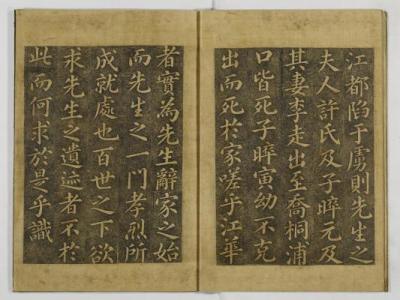 江都陷于虜則先生之
夫人許氏及子晬元及
其妻李走出至喬桐浦
口皆死子晬寅幼不克
出而死於家嗟乎江華
者實為先生辭家之始
而先生之一門孝烈所
成就處也百世之下欲
求先生之遺迹者不於
此而何求於是乎識